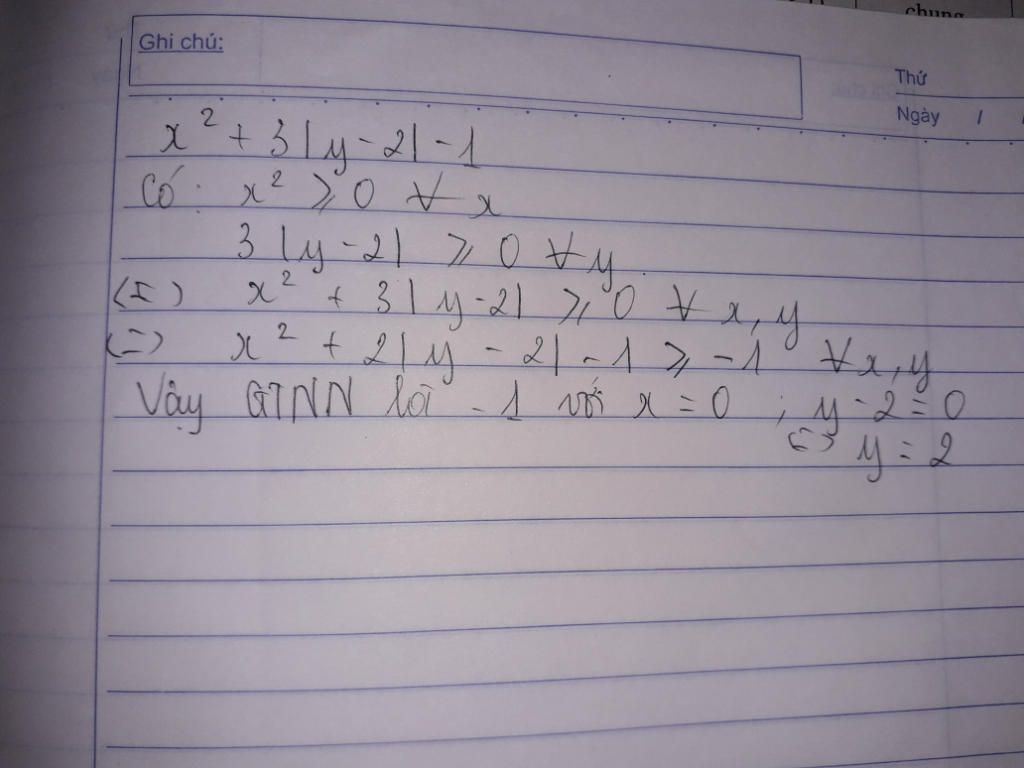 chung
Ghi chú:
Thứ
Ngày / /
x² + 3|y - 2| - 1
Có: x² ⩾ 0 ∀ x
3 |y - 2| ⩾ 0 ∀ y
(=) x² + 3|y - 2| ⩾ 0 ∀ x, y
(=) x² + 2|y - 2| - 1 ⩾ - 1 ∀ x, y
Vậy GTNN là - 1 với x = 0 ; y - 2 = 0
(=) y = 2